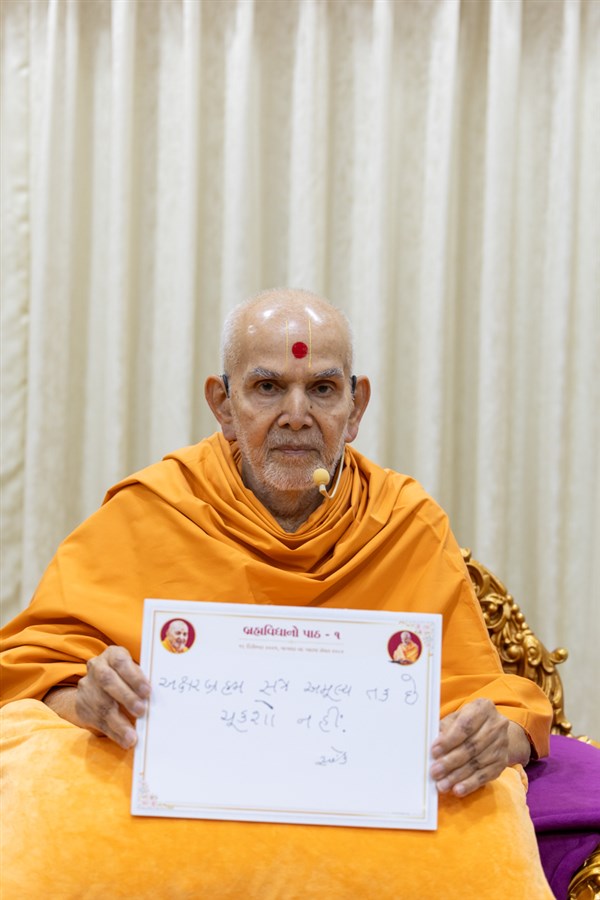 બ્રહ્મવિદ્યાનો પાઠ - ૧
અક્ષરબ્રહ્મ સત્ર અમૂલ્ય તક છે
ચૂકશો નહીં.